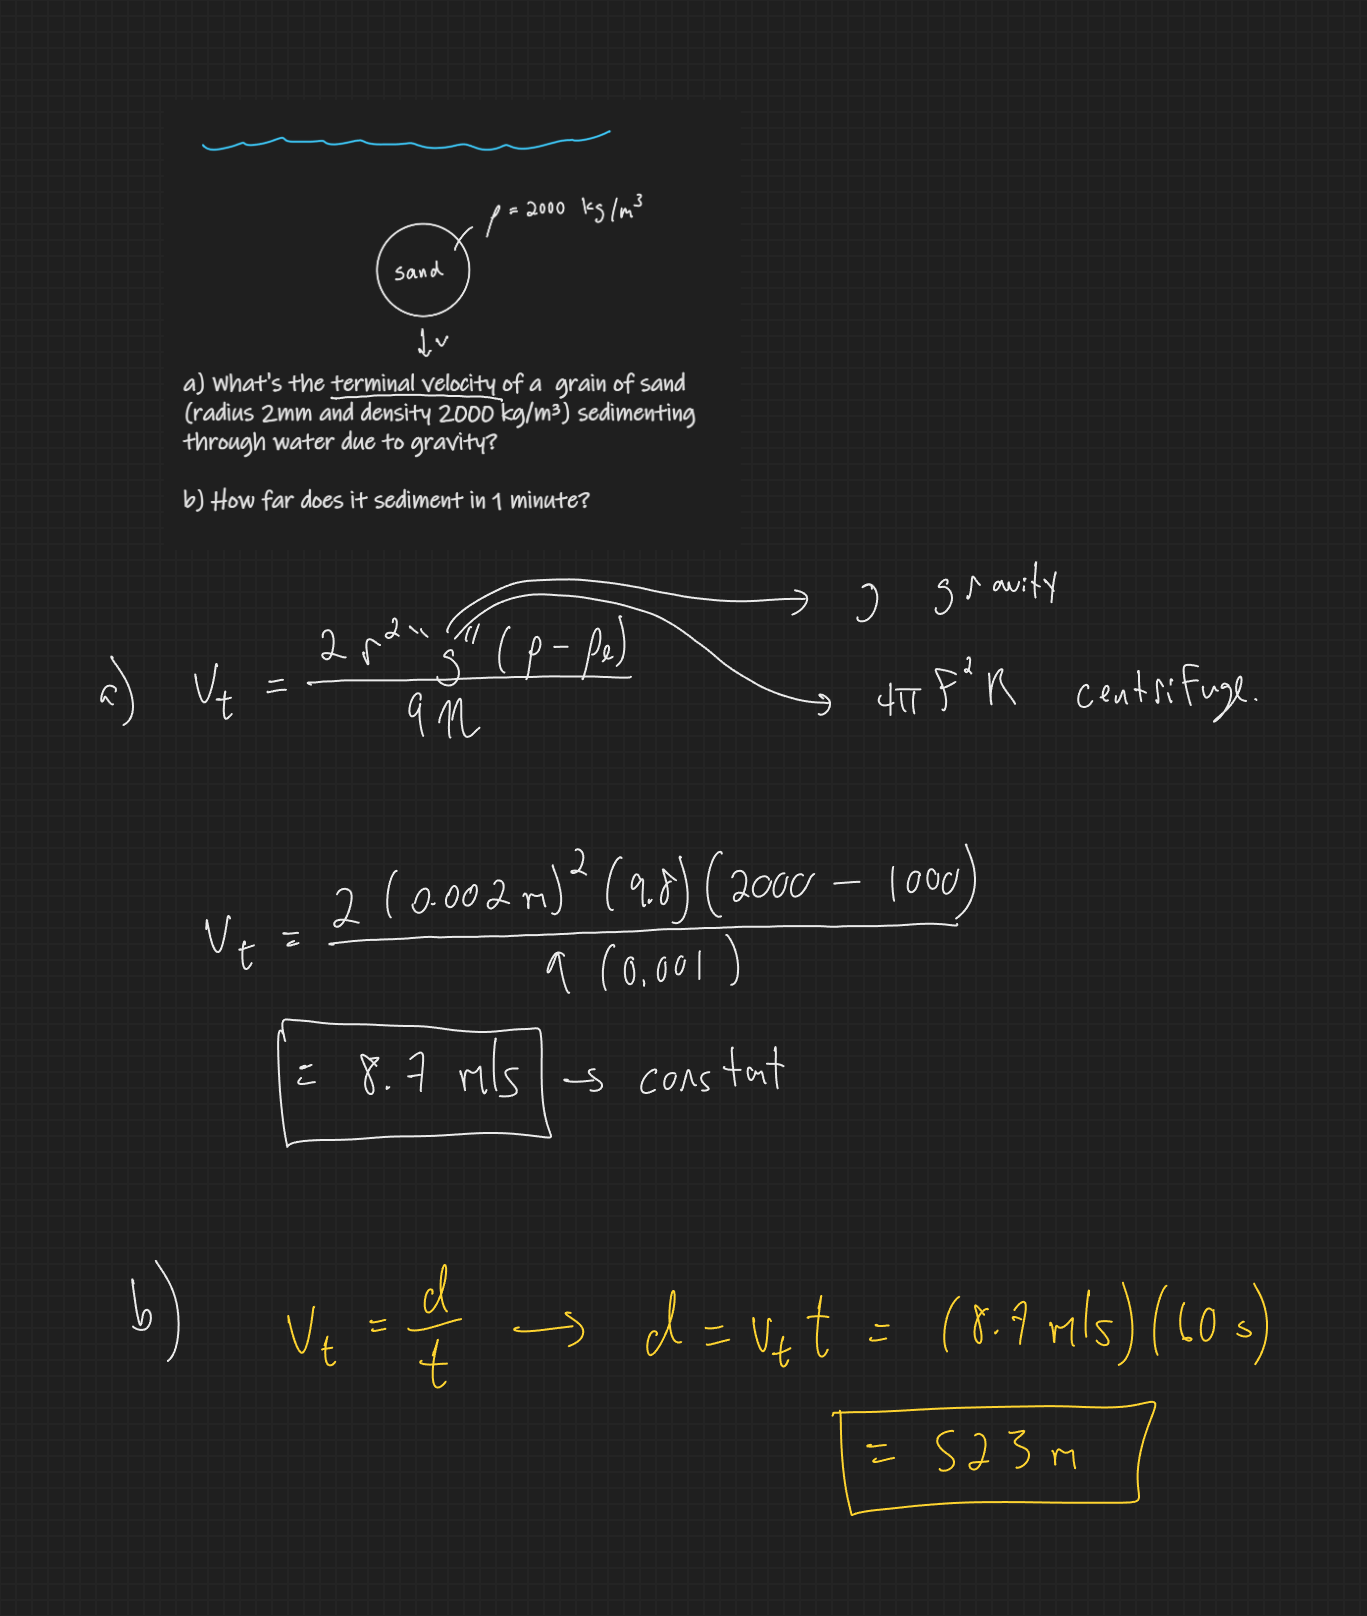 ρ = 2000 kg/m³
sand
↓v
a) What's the terminal velocity of a grain of sand
(radius 2mm and density 2000 kg/m³) sedimenting
through water due to gravity?
b) How far does it sediment in 1 minute?
g gravity
a) Vt = 2 r² "g" (ρ - ρe) / 9η
4π F² R centrifuge.
Vt = 2 (0.002 m)² (9.8) (2000 - 1000) / 9 (0.001)
= 8.7 m/s → constant
b) Vt = d / t → d = Vt t = (8.7 m/s) (60 s)
= 523 m